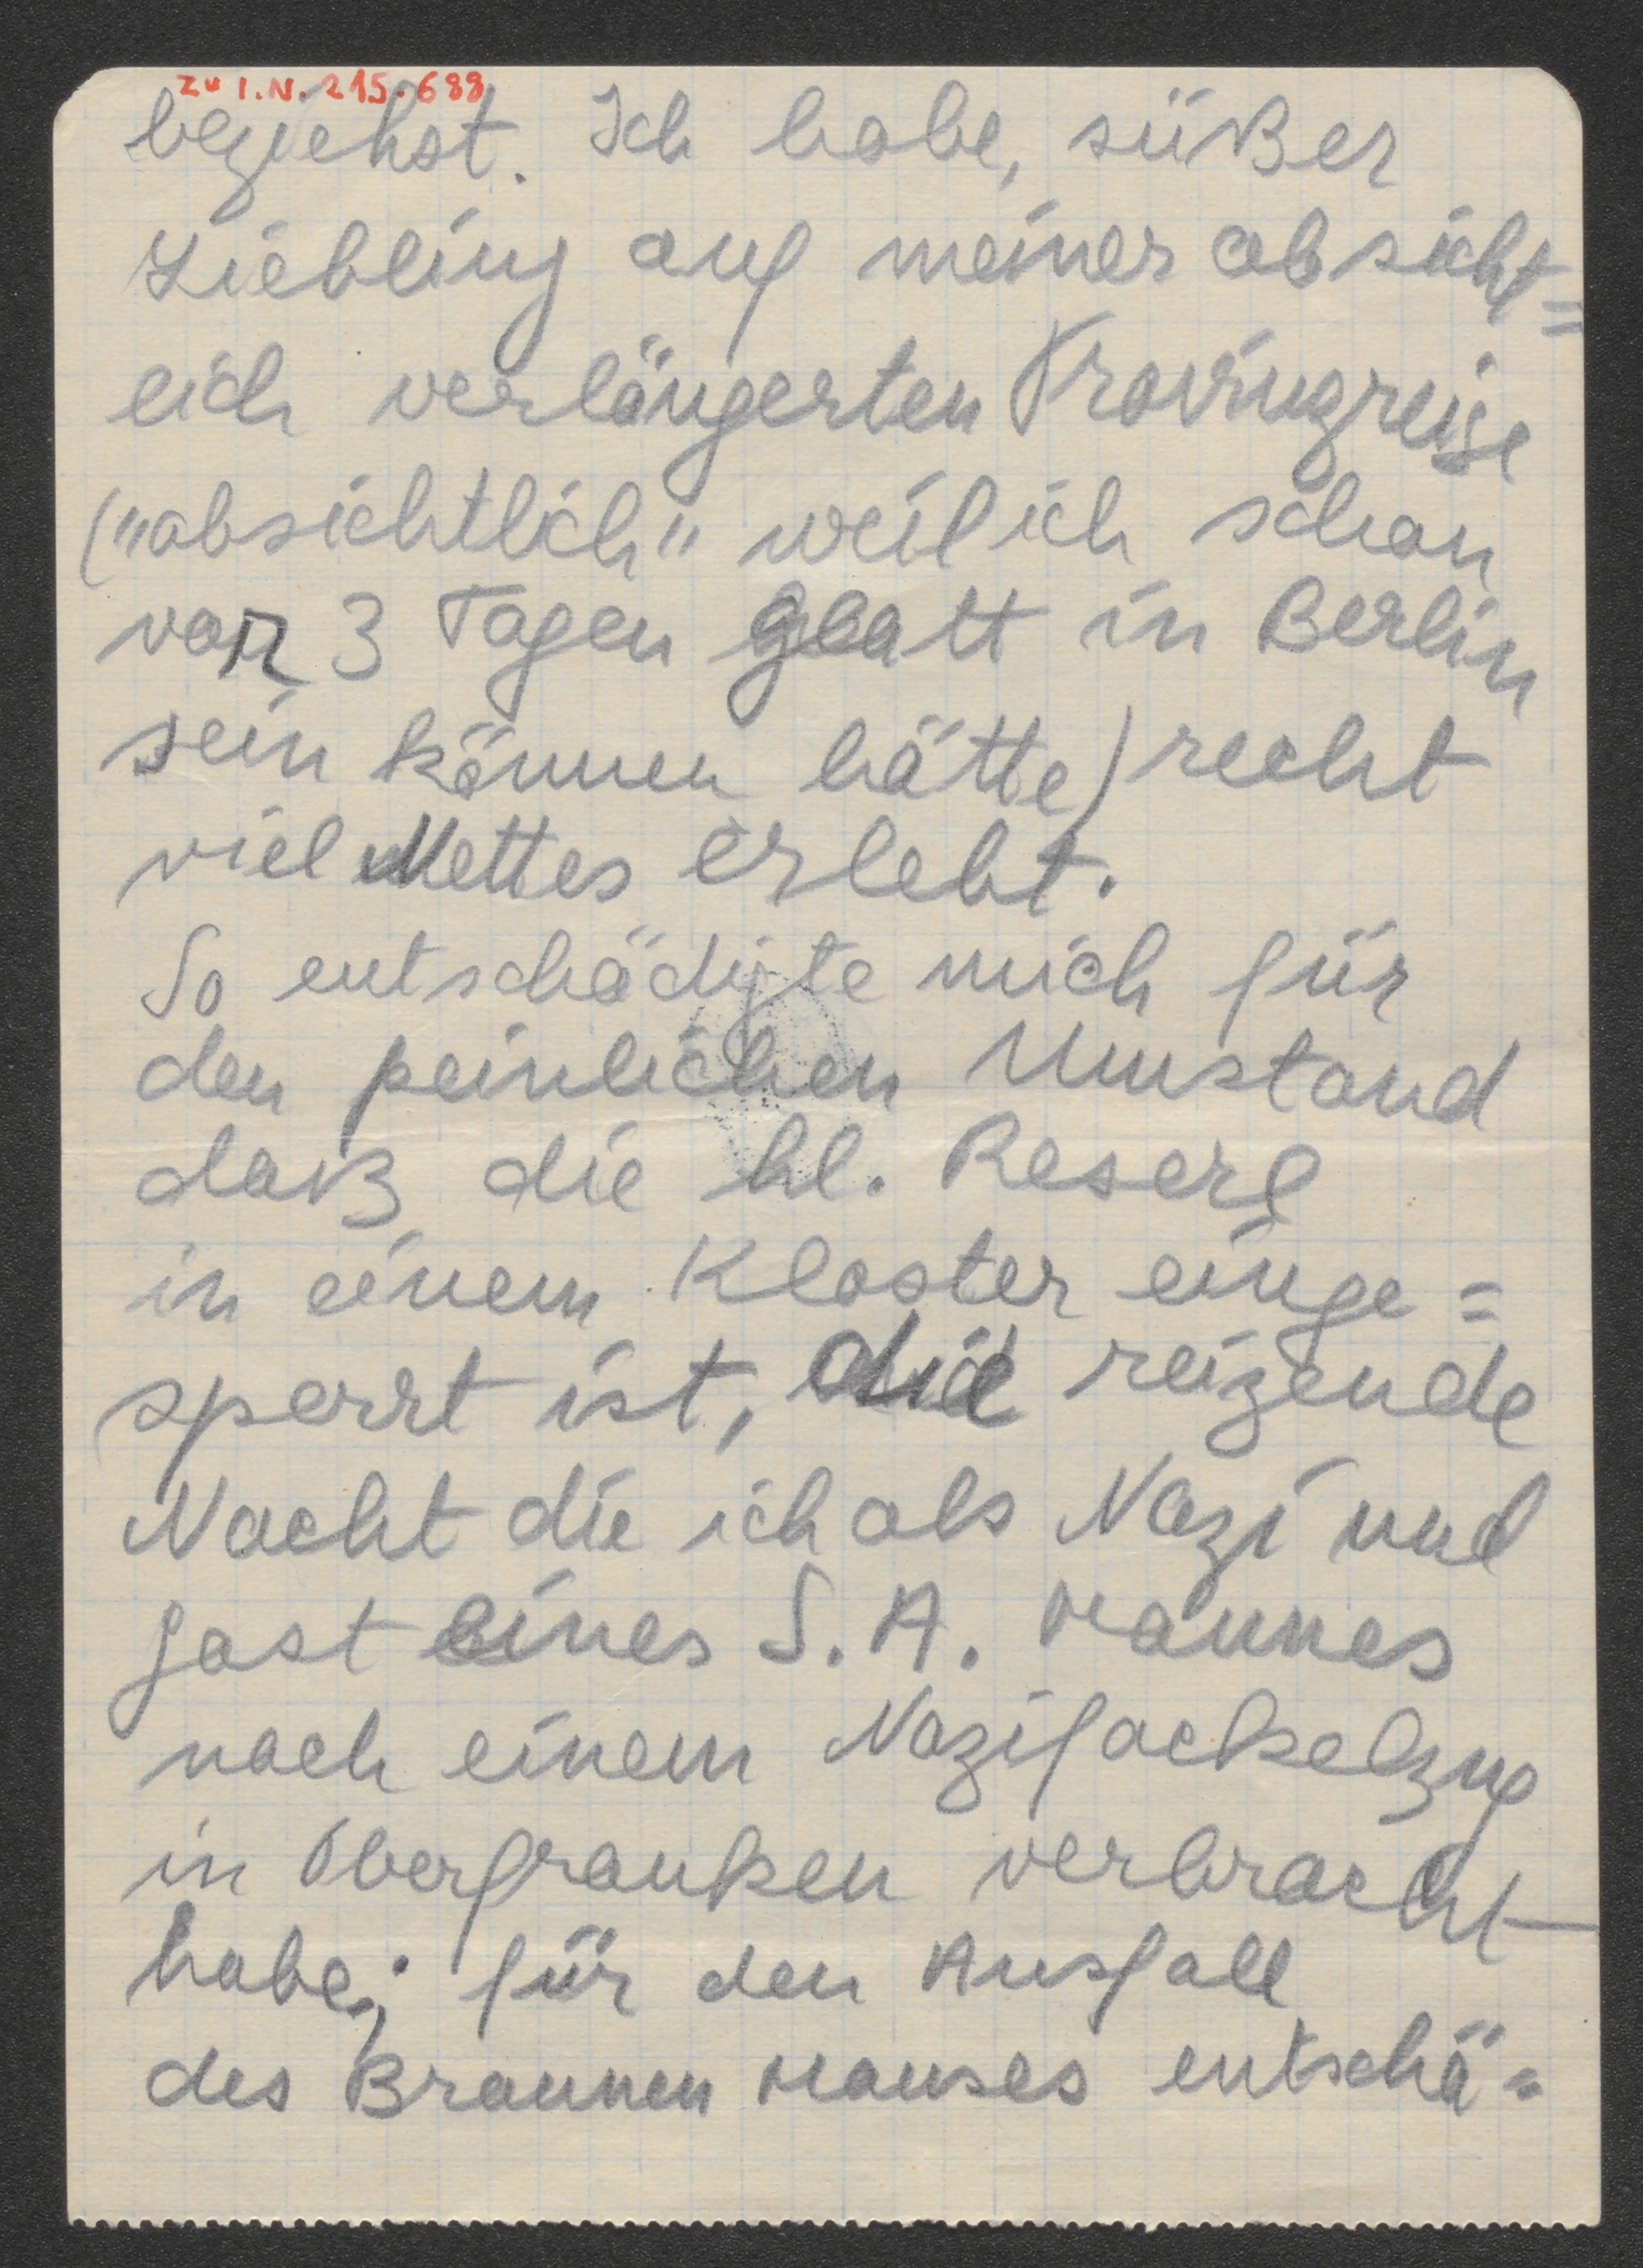 zu I.N. 215.688
beziehst. Ich habe, süßer
Liebling auf meiner absicht=
lich verlängerten Provinzreise
("absichtlich" weil ich schon
vor 3 Tagen glatt in Berlin
sein können hätte) recht
viel Nettes erlebt.
So entschädigte mich für
den peinlichen Umstand
daß die hl. Reserl
in einem Kloster einge=
sperrt ist, die reizende
Nacht die ich als Nazi und
Gast eines S. A. Mannes
nach einem Nazifackelzug
in Oberfranken verbracht
habe; für den Ausfall
des Braunen Hauses entschä=